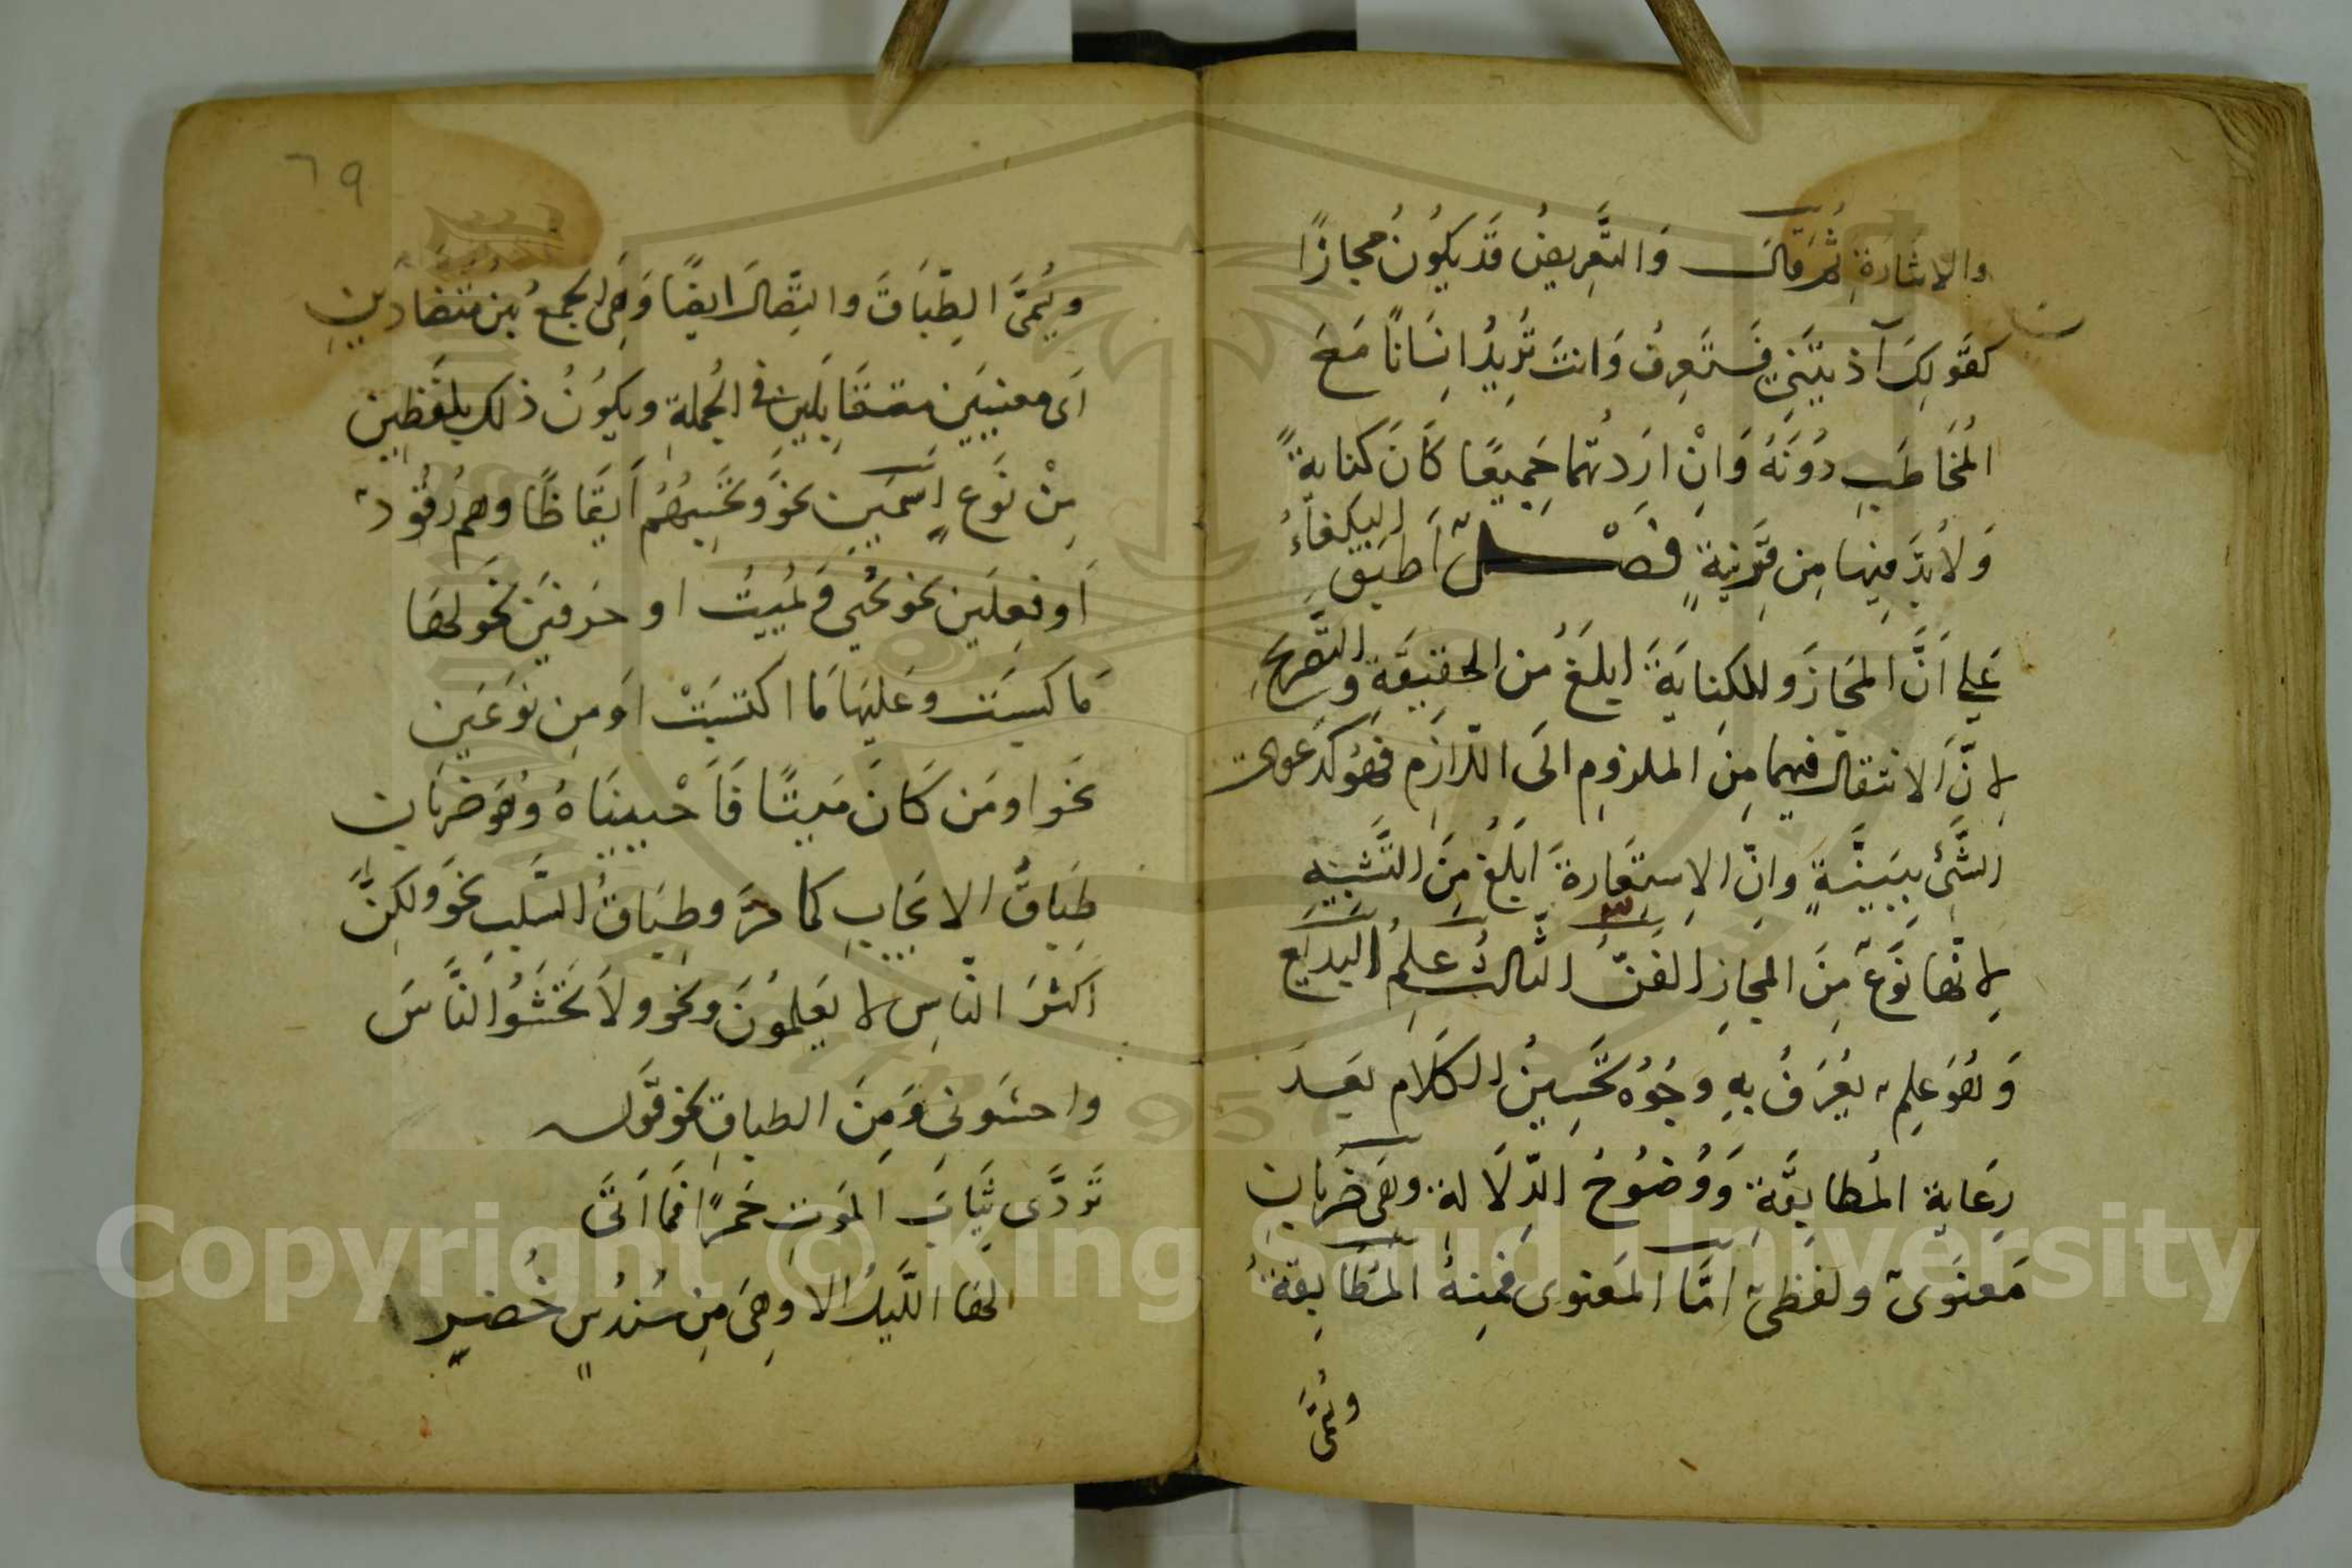 والاشَارَةِ ثُمَّ قَالَ وَالتَّعْرِيضُ قَدْ يَكُونُ مَجازًا
كَقَوْلِكَ آذَيْتَنِي فَسَتَعرِفُ وَانتَ تُرِيدُ انسَانًا مَعَ
المُخَاطَبِ دُونَهُ وَانْ ارَدْتُهُما جَمِيعًا كَانَ كنايةً
وَلاَبُدَّ فِيهَا مِن قَرِينَةٍ فصْــل اَطبَقَ البُلَغَاءُ
عَلي اَنَّ المَجَازَ والكِنايَةَ ابلَغُ مِن الحَقِيقَةِ والتَّصْرِيحِ
لِانَّ الانتقالَ فيهما مِنَ الملزومِ الَى اللّازِم فَهُوَ كَدَعوى
الشَّئِ بِبَيِّنَةٍ وانّ الاِستِعَارةَ ابلَغُ مِنَ التَّشبِيهِ
لِانّها نَوعٌ مِنَ المجازِ الفَنُّ الثّالِثُ عِلمُ البَدِيعِ
وَهُوَ عِلمٌ يُعْرَفُ بِهِ وجُوهُ تَحْسِينُ الكَلامِ بَعدَ
رِعَايةِ المُطابِقَةِ وَوُضُوحُ الدِّلَالةِ وهى ضَربَانِ
مَعنَوىٌّ ولَفظىٌّ امَّا المَعنوى فمِنهُ المُطَابِقَةُ
وتُسَمَّى
٦٩
وتُسَمَّى الطِّبَاقَ والتِّضادَ ايضًا وَهِىَ الجَمعُ بَينَ مُتَضَادَّينِ
اَى معنيَينِ متقَابِلَينِ فى الجُملةِ ويكُونُ ذلك بِلَفظَينِ
مِنْ نَوعٍ اسمَينِ نحوُ وتَحسَبُهُم اَيقَاظًا وهم رُقُودٌ
اَو فِعلَينِ نحو يُحيِي وَيُمِيتُ او حَرفَينِ نَحو لَهَا
مَا كسَبَت وعَلَيهَا مَا اكتسَبَتْ اَو مِن نَوعَينِ
نَحوَ اومَن كَانَ مَيتًا فَاَحْيينَاهُ وهُوَ ضَربَانِ
طِبَاقُ الايجَابِ كما مَرَّ وطِبَاقُ السَّلبِ نحوَ ولكِنَّ
اكثرَ النّاسِ لا يَعلمُونَ ونحو ولاَ تَخشَوُا النَّاسَ
واخشَونِى وَمِنَ الطباقِ نحو قَوله
تَرَدَّى ثِيَابَ المَوتِ حُمرًا فَمَا اَتَى
لها اللَّيلُ الا وَهىَ مِن سُندُسٍ خُضرٍ
Copyright © King Saud University
1957